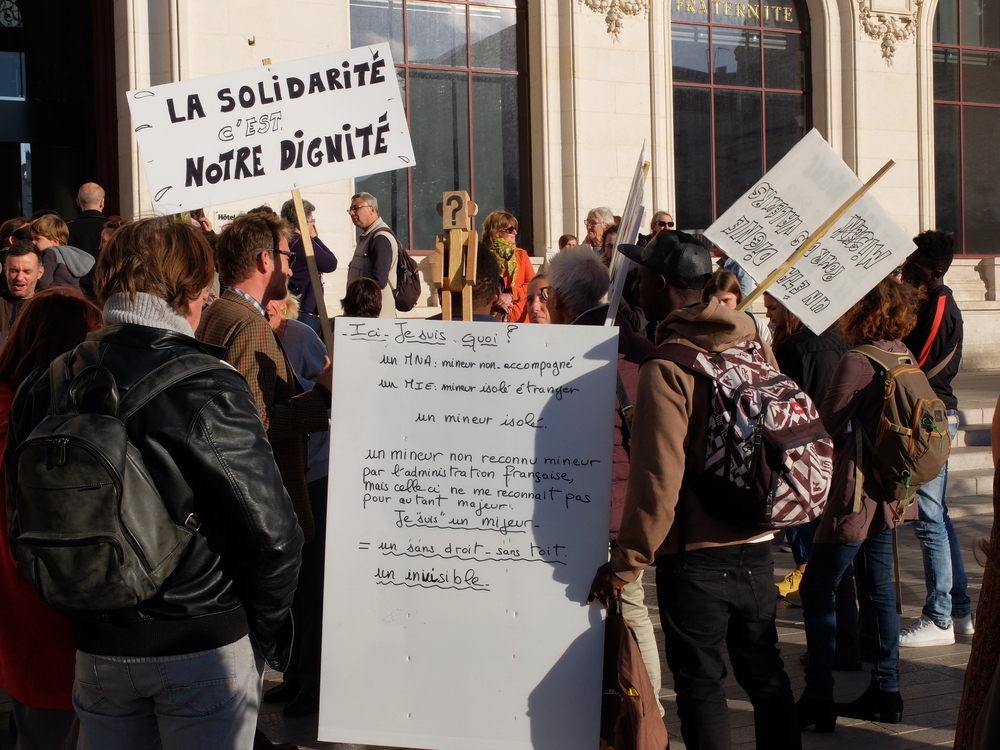 FRATERNITE
LA SOLIDARITÉ
C'EST
NOTRE DIGNITÉ
Hôtel
?
UN ÉTÉ
DIGNE
Ici. Je suis. quoi?
un MNA: mineur non-accompagné
un MIE: mineur isolé étranger
un mineur isolé.
un mineur non reconnu mineur
par l'administration française,
mais celle ci ne me reconnait pas
pour autant majeur.
Je "suis" un mijeur-
= un sans droit-sans toit.
un invisible.